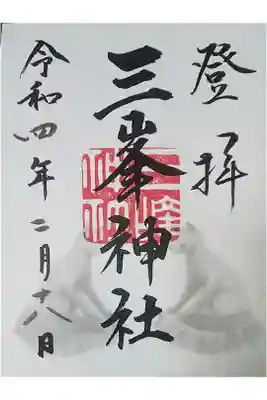 登拝
三峯神社
令和四年二月十八日